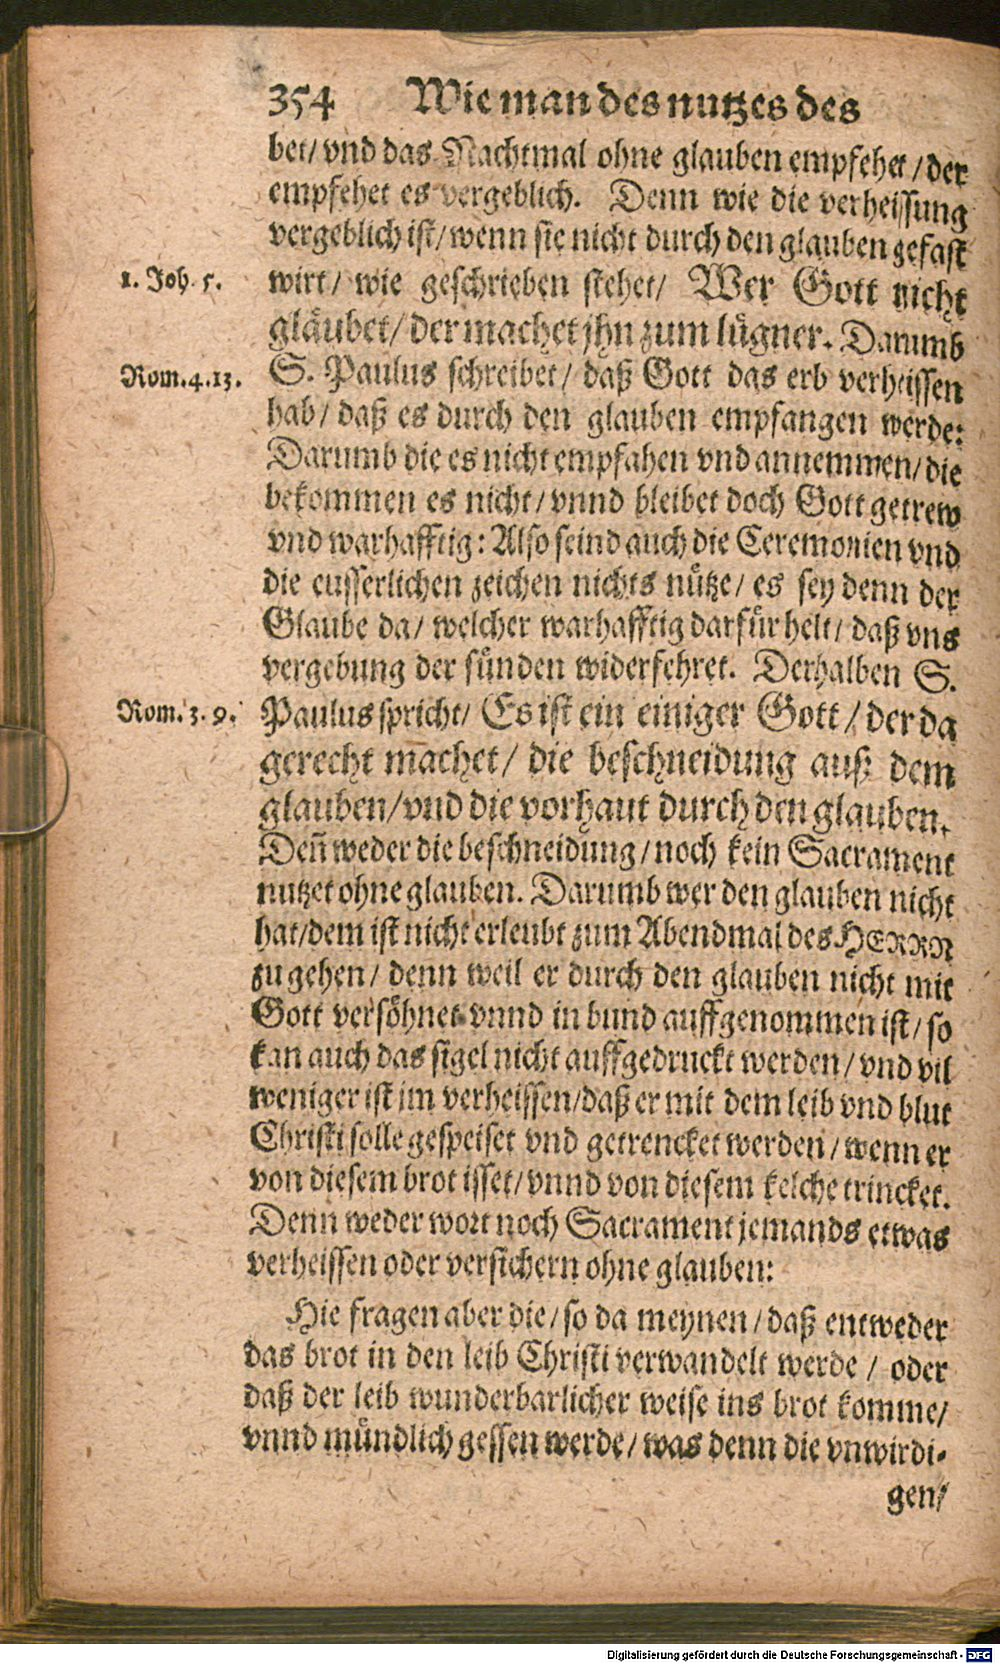 354 Wie man des nutzes des
bet/ vnd das Nachtmal ohne glauben empfehet / der
empfehet es vergeblich. Denn wie die verheissung
vergeblich ist/ wenn sie nicht durch den glauben gefast
1. Joh. 5. wirt/ wie geschrieben stehet/ Wer Gott nicht
gläubet/ der machet jhn zum lügner. Darumb
Rom. 4. 13. S. Paulus schreibet/ daß Gott das erb verheissen
hab/ daß es durch den glauben empfangen werde:
Darumb die es nicht empfahen vnd annemmen/ die
bekommen es nicht/ vnnd bleibet doch Gott getrew
vnd warhafftig: Also seind auch die Ceremonien vnd
die eusserlichen zeichen nichts nütze/ es sey denn der
Glaube da/ welcher warhafftig darfür helt/ daß vns
vergebung der sünden widerfehret. Derhalben S.
Rom. 3. 9. Paulus spricht/ Es ist ein einiger Gott / der da
gerecht machet/ die beschneidung auß dem
glauben/ vnd die vorhaut durch den glauben.
Deñ weder die beschneidung / noch kein Sacrament
nutzet ohne glauben. Darumb wer den glauben nicht
hat/ dem ist nicht erleubt zum Abendmal des HERRN
zu gehen / denn weil er durch den glauben nicht mit
Gott versöhnet vnnd in bund auffgenommen ist/ so
kan auch das sigel nicht auffgedruckt werden / vnd vil
weniger ist jm verheissen/ daß er mit dem leib vnd blut
Christi solle gespeiset vnd getrencket werden / wenn er
von diesem brot isset/ vnnd von diesem kelche trincket.
Denn weder wort noch Sacrament jemands etwas
verheissen oder versichern ohne glauben:
Hie fragen aber die / so da meynen / daß entweder
das brot in den leib Christi verwandelt werde / oder
daß der leib wunderbarlicher weise ins brot komme/
vnnd mündlich gessen werde / was denn die vnwirdi-
gen/
Digitalisierung gefördert durch die Deutsche Forschungsgemeinschaft - DFG